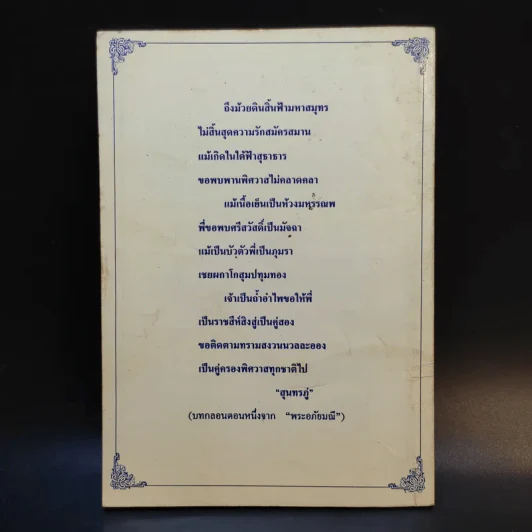 ถึงม้วยดินสิ้นฟ้ามหาสมุทร
ไม่สิ้นสุดความรักสมัครสมาน
แม้เกิดในใต้ฟ้าสุธาธาร
ขอพบพานพิศวาสไม่คลาดคลา
แม้เนื้อเย็นเป็นห้วงมหรรณพ
พี่ขอพบศรีสวัสดิ์เป็นมัจฉา
แม้เป็นบัวตัวพี่เป็นภุมรา
เชยผกาโกสุมปทุมทอง
เจ้าเป็นถ้ำอำไพขอให้พี่
เป็นราชสีห์สิงสู่เป็นคู่สอง
ขอติดตามทรามสงวนนวลละออง
เป็นคู่ครองพิศวาสทุกชาติไป
"สุนทรภู่"
(บทกลอนตอนหนึ่งจาก "พระอภัยมณี")